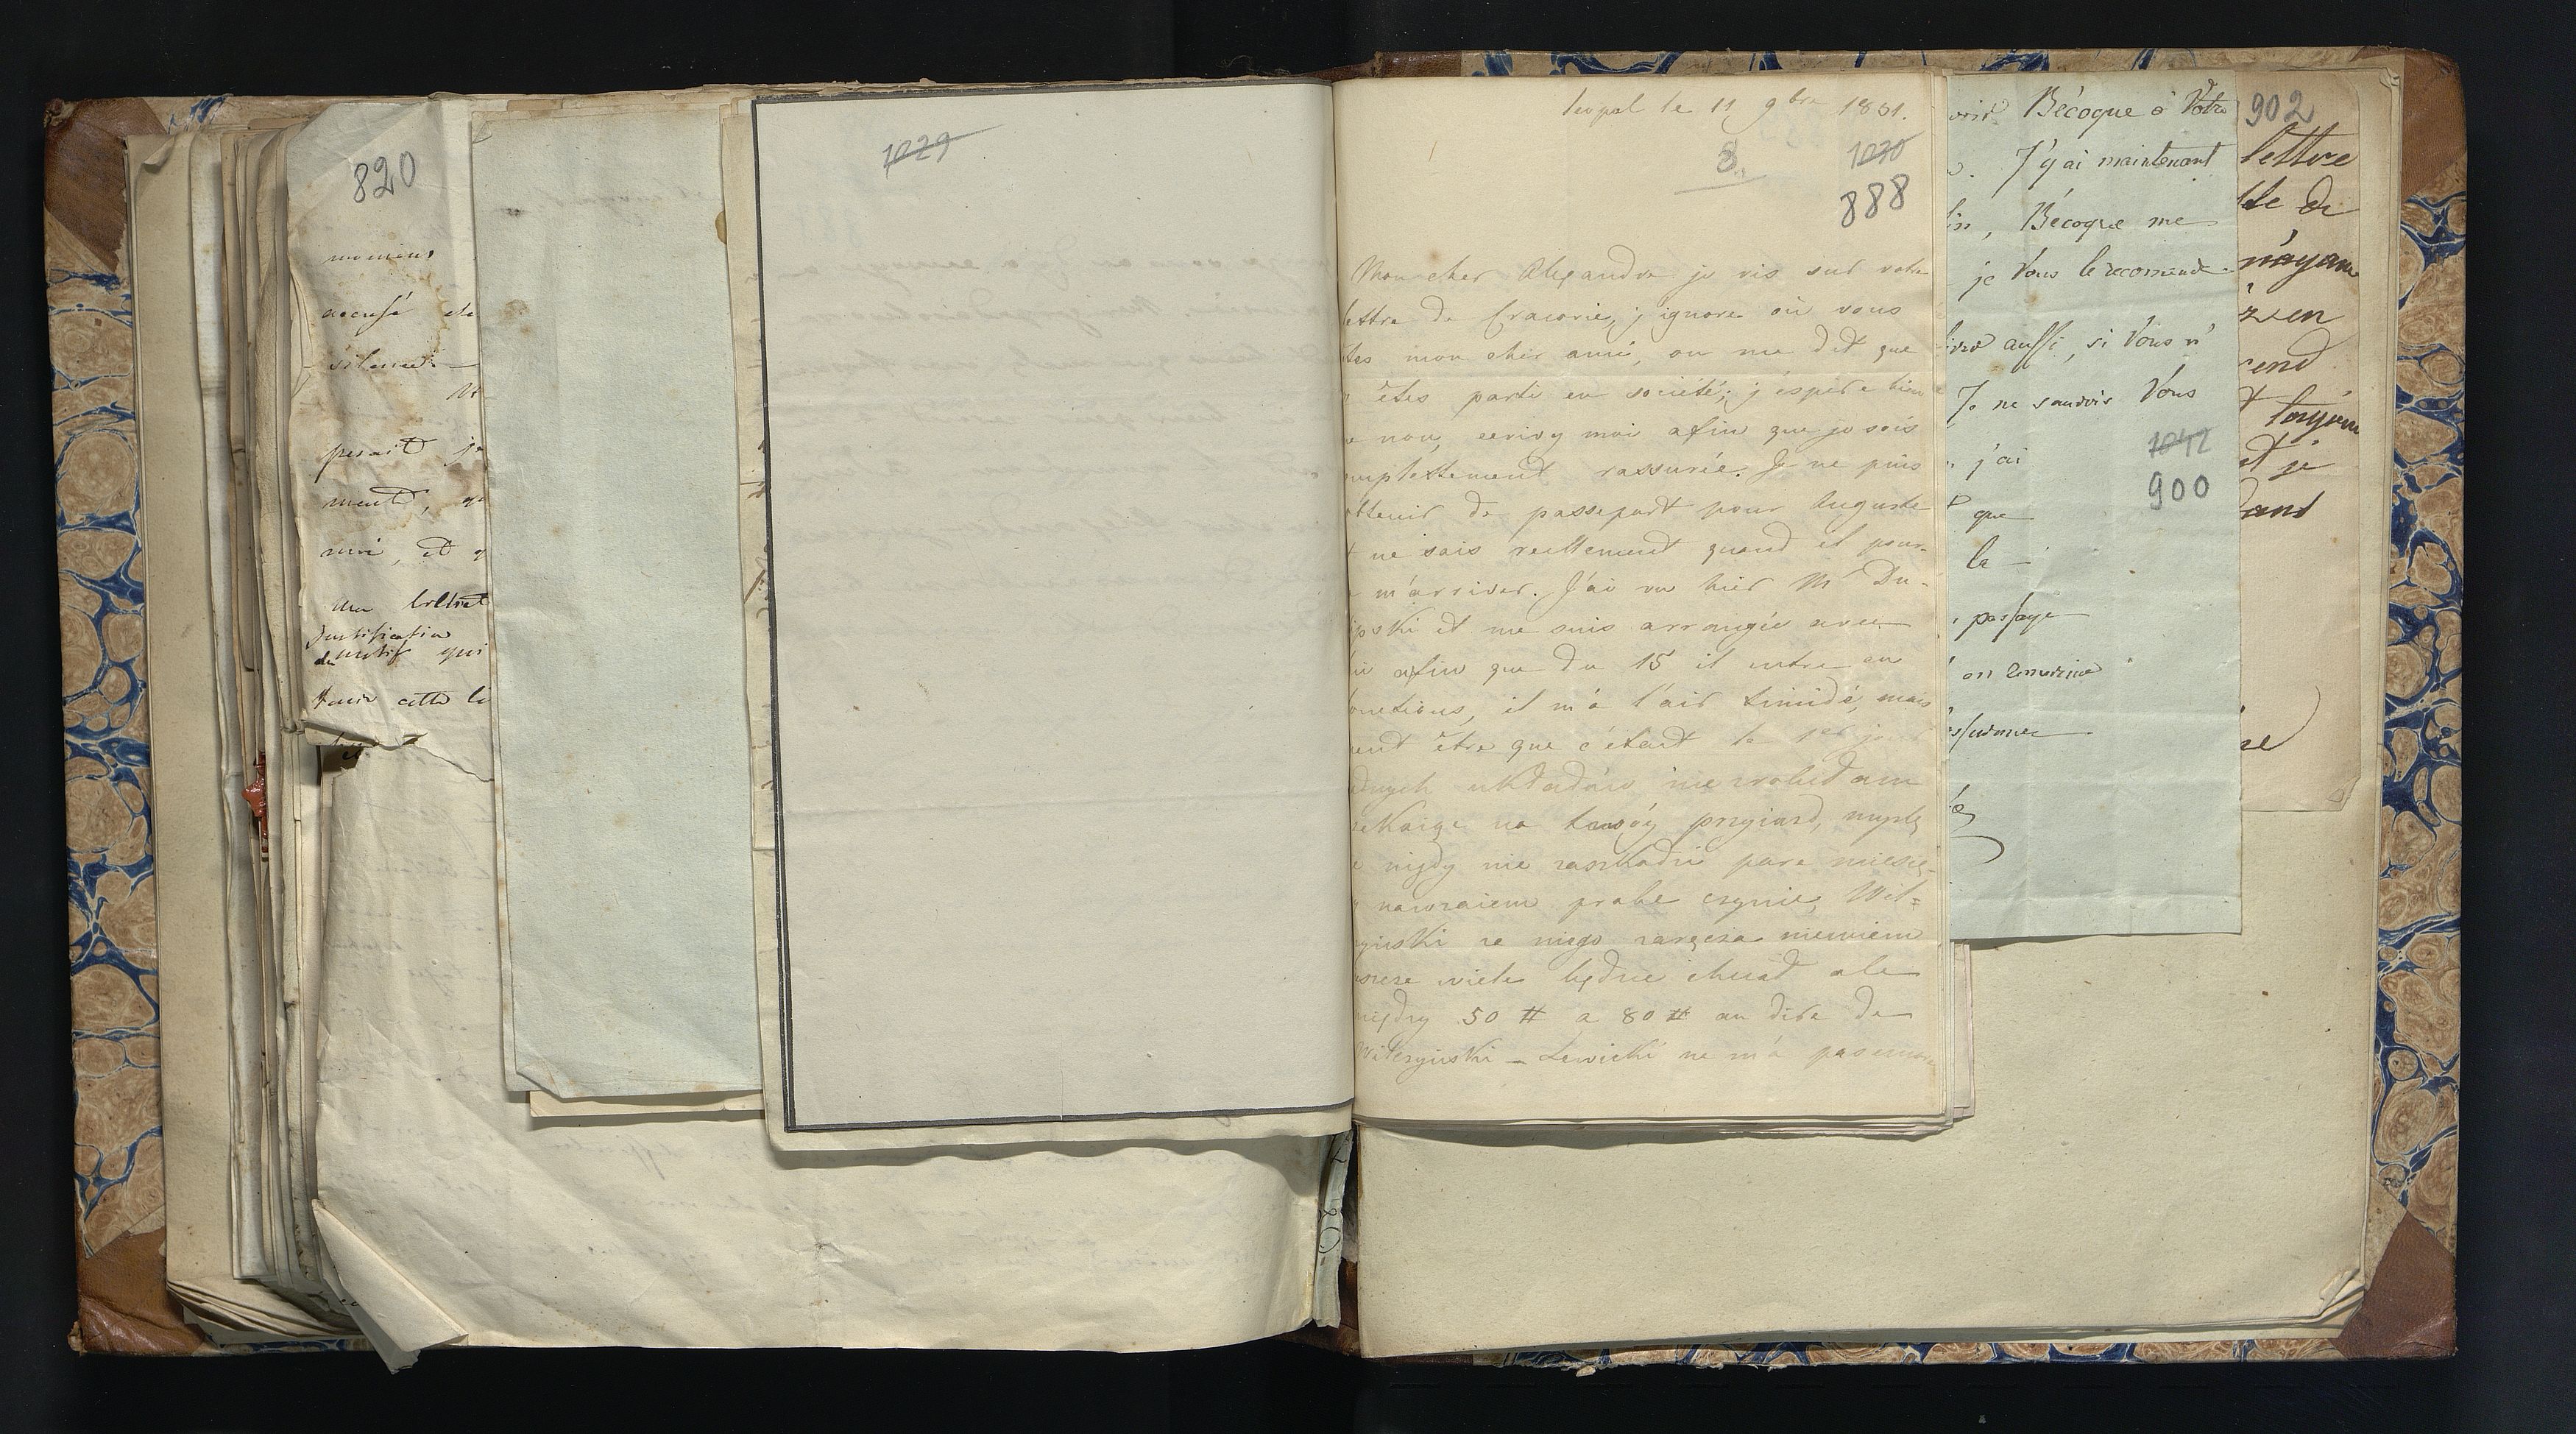 820
moment
accusé de
silence
perait je
ment, qu
moi, et q
justification
du motif qui
cette le
1029
leopol le 11 9bre 1831.
8.
1030
888
Mon cher Alexandre je vis sur votre
lettre de Cracovie, j'ignore où vous
tes mon cher ami, on me dit que
êtes parti en société; j'espére bien
e non, ecrivez moi afin que je sois
mplettement rassurée. Je ne puis
ttenir de passeport pour Auguste
t ne sais reellement quand il pour-
m'arriver. J'ai vu hier Mr Du-
ski et me suis arrangée avec
ui afin que du 15 il entre en
onctions, il m'a l'air timide, mais
peut être que c'était le 1er jour
adnych układów nie zrobiłam
zekaiąc na twoóy przyiazd, myślę
e nigdy nie zaszkodzi pare miesię-
nawzaiem probe czynić, Wil=
zynski za niego zaręcza niewiem
eszcze wiele będzie chciał ale
między 50 # a 80 # au dire de
Wilczynski – Lewicki ne m'a pas encore
Bécoque à Votre
J'y ai maintenant
Bécoque me
je Vous le recomende.
aussi, si Vous n'
Je ne saurois Vous
j'ai
1042
900
que
la
passage
902
lettre
tte de
zen
rend
t toujour
et je